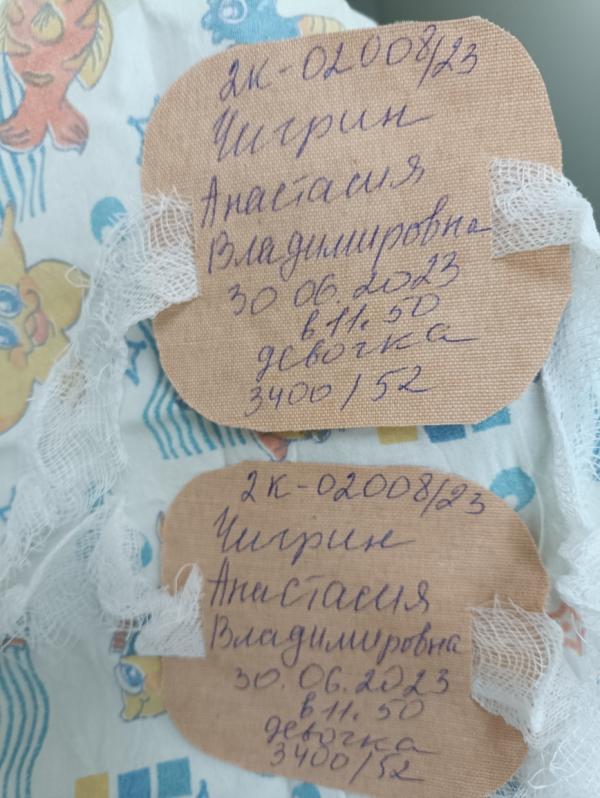 2К-02008/23
Чигрин
Анастасия
Владимировна
30 06.2023
в 11.50
девочка
3400/52
2К-02008/23
Чигрин
Анастасия
Владимировна
30.06.2023
в 11.50
девочка
3400/52